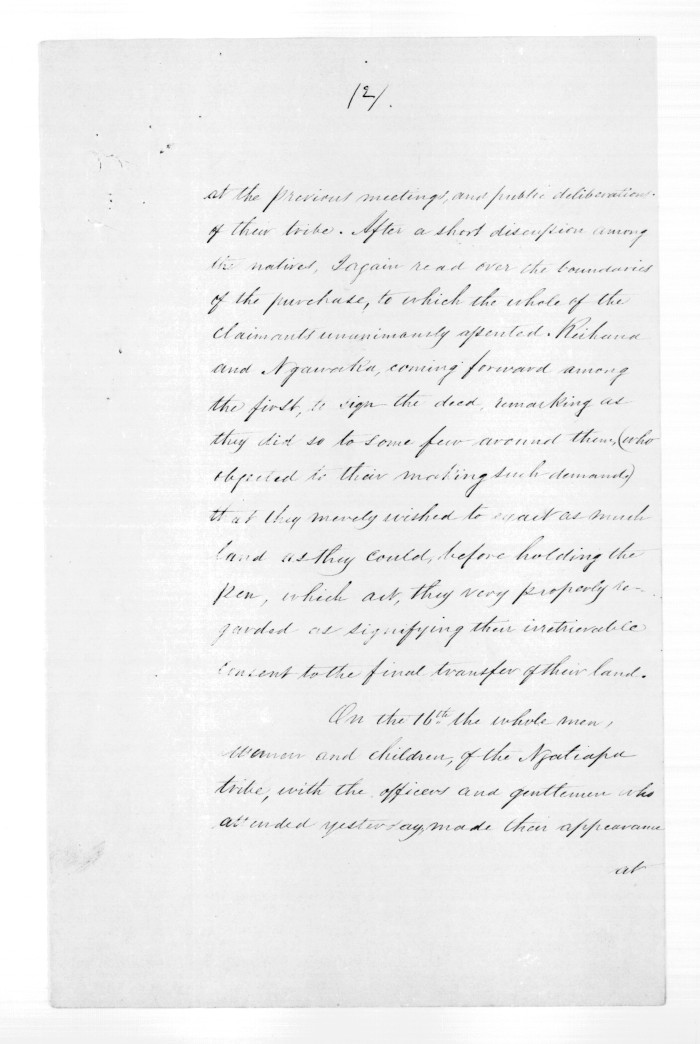 /2/.
at the previous meetings, and public deliberations
of their tribe. After a short discussion among
the natives, I again read over the boundaries
of the purchase, to which the whole of the
claimants unanimously assented. Reihana
and Ngawaka, coming forward among
the first, to sign the deed, remarking as
they did so to some few around them, (who
objected to their making such demands)
that they merely wished to exact as much
land as they could, before holding the
pen, which act, they very properly re-
garded as signifying their irretrievable
consent to the final transfer of their land.
On the 16th the whole men,
women and children, of the Ngatiapa
tribe, with the officers and gentlemen who
attended yesterday, made their appearance
at